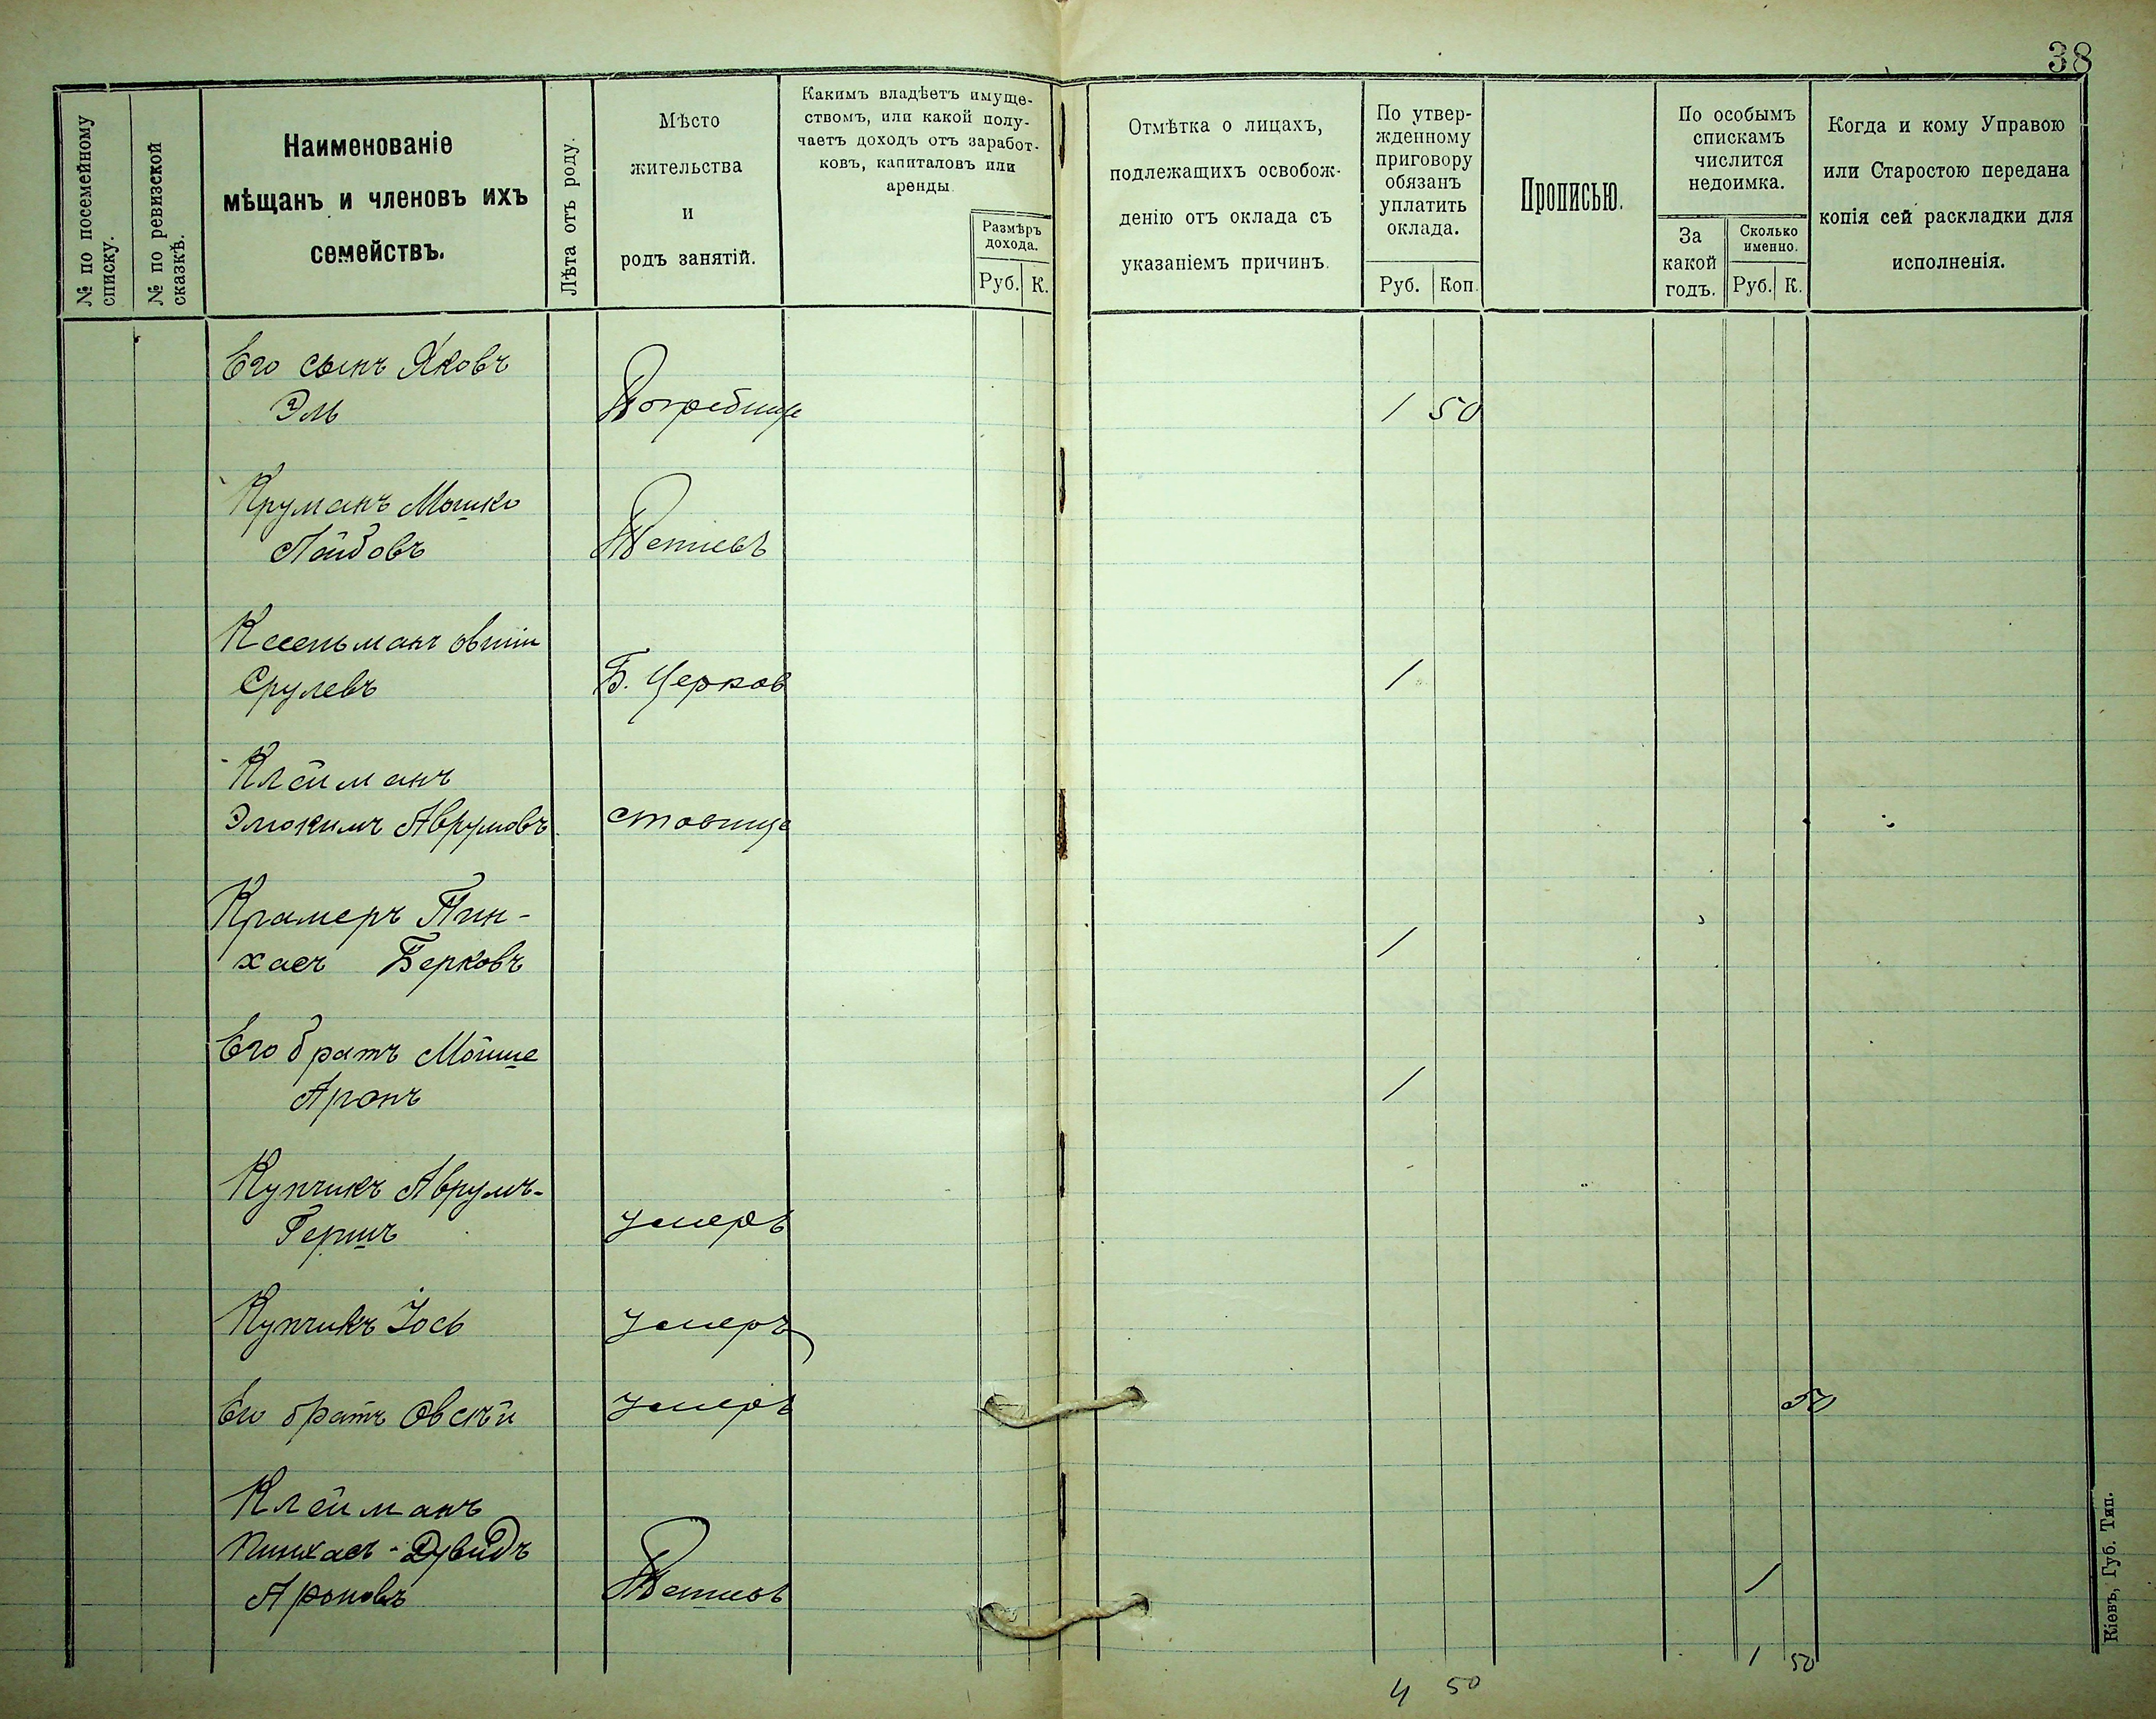 38
№ по посемейному
списку.
№ по ревизской
сказкѣ.
Наименованіе
мѣщанъ и членовъ ихъ
семействъ.
Лѣта отъ роду.
Мѣсто
жительства
и
родъ занятій.
Какимъ владѣетъ имуще-
ствомъ, или какой полу-
чаетъ доходъ отъ заработ-
ковъ, капиталовъ или
аренды.
Размѣръ
дохода.
Руб. К.
Отмѣтка о лицахъ,
подлежащихъ освобож-
денію отъ оклада съ
указаніемъ причинъ.
По утвер-
жденному
приговору
обязанъ
уплатить
оклада.
Руб. Коп.
Прописью.
По особымъ
спискамъ
числится
недоимка.
За
какой
годъ.
Сколько
именно.
Руб. К.
Когда и кому Управою
или Старостою передана
копія сей раскладки для
исполненія.
Его сынъ Яковъ
Эль Погребище 1 50
Круманъ Мошко
Лейбовъ Тетіевъ
Кесельманъ
Срулевъ Б. Церков 1
Клейманъ
Эліокимъ Аврумовъ ставище
Крамеръ Пин-
хасъ Берковъ 1
Его братъ Мойше
Аронъ 1
Купчикъ Аврумъ-
Гершъ умеръ
Купчикъ Іось умеръ
Его братъ Овсѣй умеръ 50
Клейманъ
Пинхасъ-Дувидъ
Ароновъ Тетіевъ 1
1 50
4 50
Кіевъ, Губ. Тип.